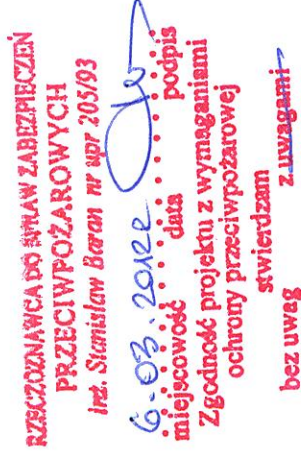 RZECZOZNAWCA DO SPRAW ZABEZPIECZEŃ
PRZECIWPOŻAROWYCH
inż. Stanisław Baran nr upr 205/93
6.03.2012r
miejscowość data podpis
Zgodność projektu z wymaganiami
ochrony przeciwpożarowej
stwierdzam
bez uwag z uwagami